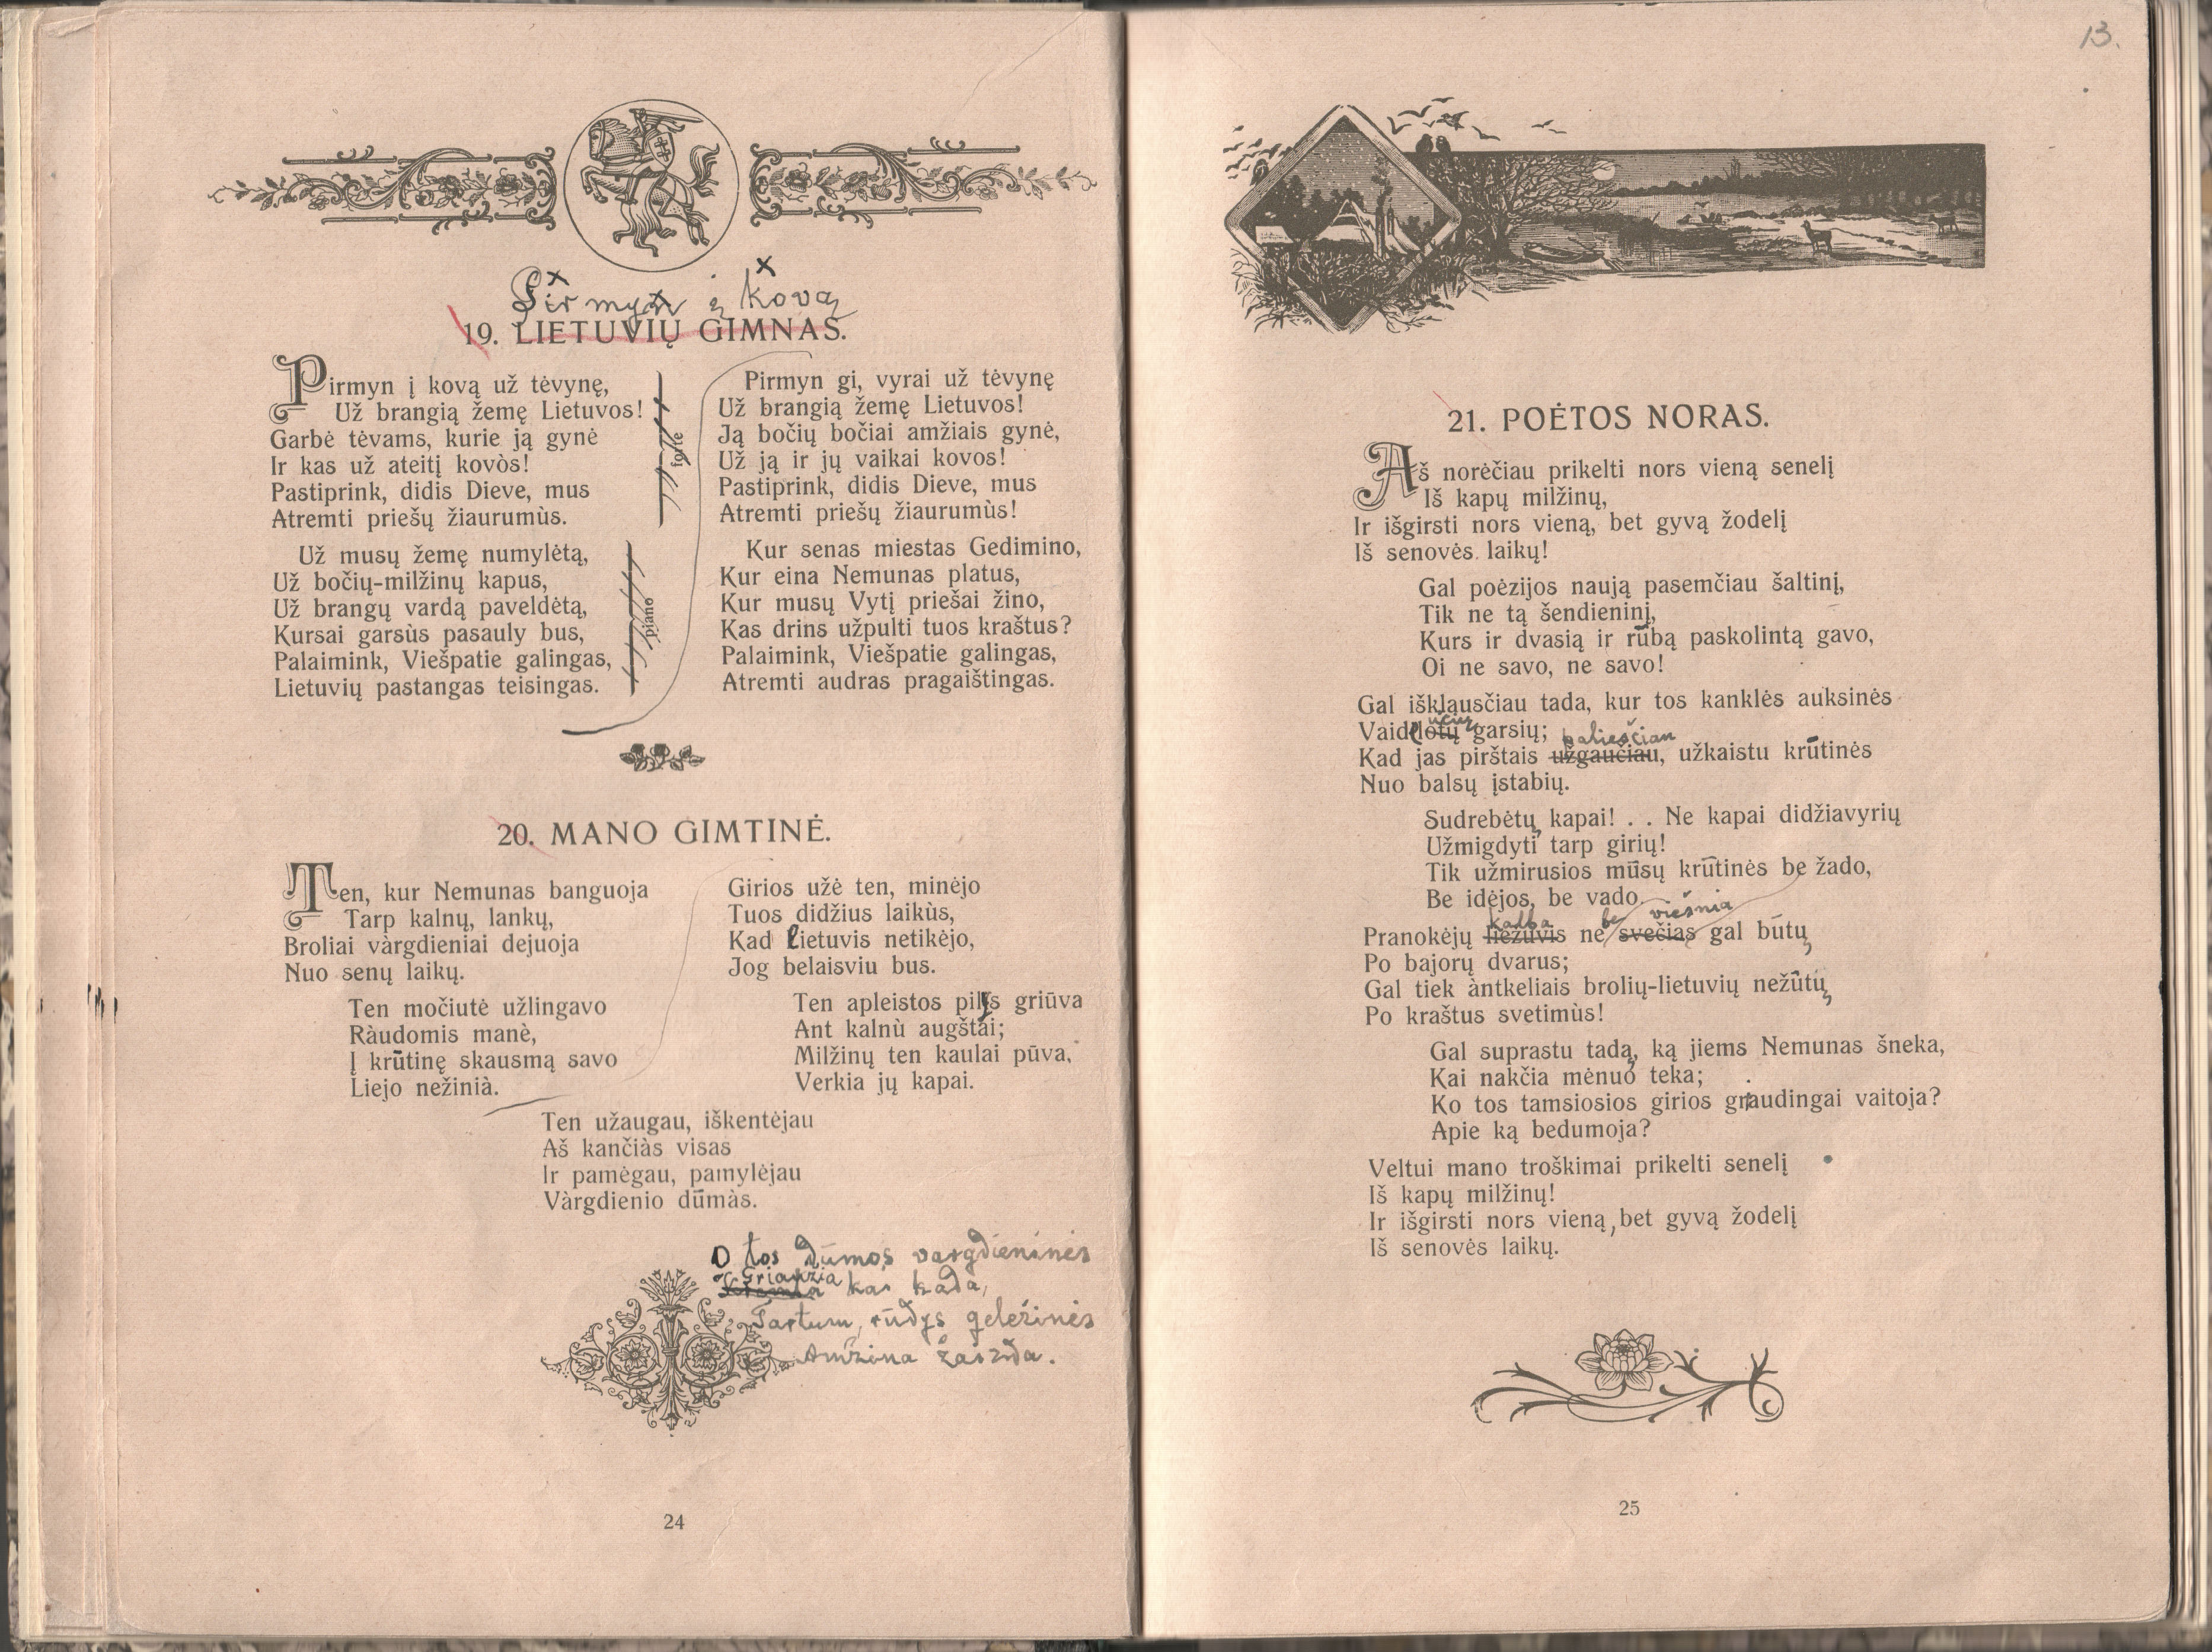 Pirmyn į kovą
19. LIETUVIŲ GIMNAS.
Pirmyn į kovą už tėvynę,
Už brangią žemę Lietuvos!
Garbė tėvams, kurie ją gynė
Ir kas už ateitį kovòs!
Pastiprink, didis Dieve, mus
Atremti priešų žiaurumùs.
forte
Už musų žemę numylėtą,
Už bočių-milžinų kapus,
Už brangų vardą paveldėtą,
Kursai garsùs pasauly bus,
Palaimink, Viešpatie galingas,
Lietuvių pastangas teisingas.
piano
Pirmyn gi, vyrai už tėvynę
Už brangią žemę Lietuvos!
Ją bočių bočiai amžiais gynė,
Už ją ir jų vaikai kovos!
Pastiprink, didis Dieve, mus
Atremti priešų žiaurumùs!
Kur senas miestas Gedimino,
Kur eina Nemunas platus,
Kur musų Vytį priešai žino,
Kas drins užpulti tuos kraštus?
Palaimink, Viešpatie galingas,
Atremti audras pragaištingas.
20. MANO GIMTINĖ.
Ten, kur Nemunas banguoja
Tarp kalnų, lankų,
Broliai vàrgdieniai dejuoja
Nuo senų laikų.
Ten močiutė užlingavo
Ràudomis manè,
Į krūtinę skausmą savo
Liejo nežinià.
Girios užė ten, minėjo
Tuos didžius laikùs,
Kad lietuvis netikėjo,
Jog belaisviu bus.
Ten apleistos pilys griūva
Ant kalnù augštai;
Milžinų ten kaulai pūva,
Verkia jų kapai.
Ten užaugau, iškentėjau
Aš kančiàs visas
Ir pamėgau, pamylėjau
Vàrgdienio dūmàs.
O tos dūmos vargdieninės
Griaužia kai kada,
Tartum rūdys geležinės
Amžina žaizda.
24
13.
21. POĖTOS NORAS.
Aš norėčiau prikelti nors vieną senelį
Iš kapų milžinų,
Ir išgirsti nors vieną, bet gyvą žodelį
Iš senovės laikų!
Gal poėzijos naują pasemčiau šaltinį,
Tik ne tą šendieninį,
Kurs ir dvasią ir rūbą paskolintą gavo,
Oi ne savo, ne savo!
Gal išklausčiau tada, kur tos kanklės auksinės
učių
Vaidelotų garsių;
paliesčiau
Kad jas pirštais užgaučiau, užkaistu krūtinės
Nuo balsų įstabių.
Sudrebėtų kapai! . . Ne kapai didžiavyrių
Užmigdyti tarp girių!
Tik užmirusios mūsų krūtinės be žado,
Be idėjos, be vado.
kalba be viešnia
Pranokėjų liežuvis ne svečias gal būtų
Po bajorų dvarus;
Gal tiek àntkeliais brolių-lietuvių nežūtų
Po kraštus svetimùs!
Gal suprastu tadą, ką jiems Nemunas šneka,
Kai nakčia mėnuo teka;
Ko tos tamsiosios girios graudingai vaitoja?
Apie ką bedumoja?
Veltui mano troškimai prikelti senelį
Iš kapų milžinų!
Ir išgirsti nors vieną, bet gyvą žodelį
Iš senovės laikų.
25